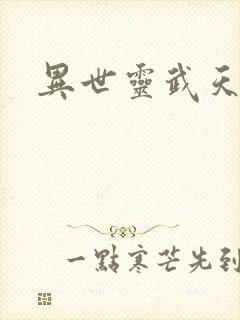 異世靈武天
一點寒芒先到